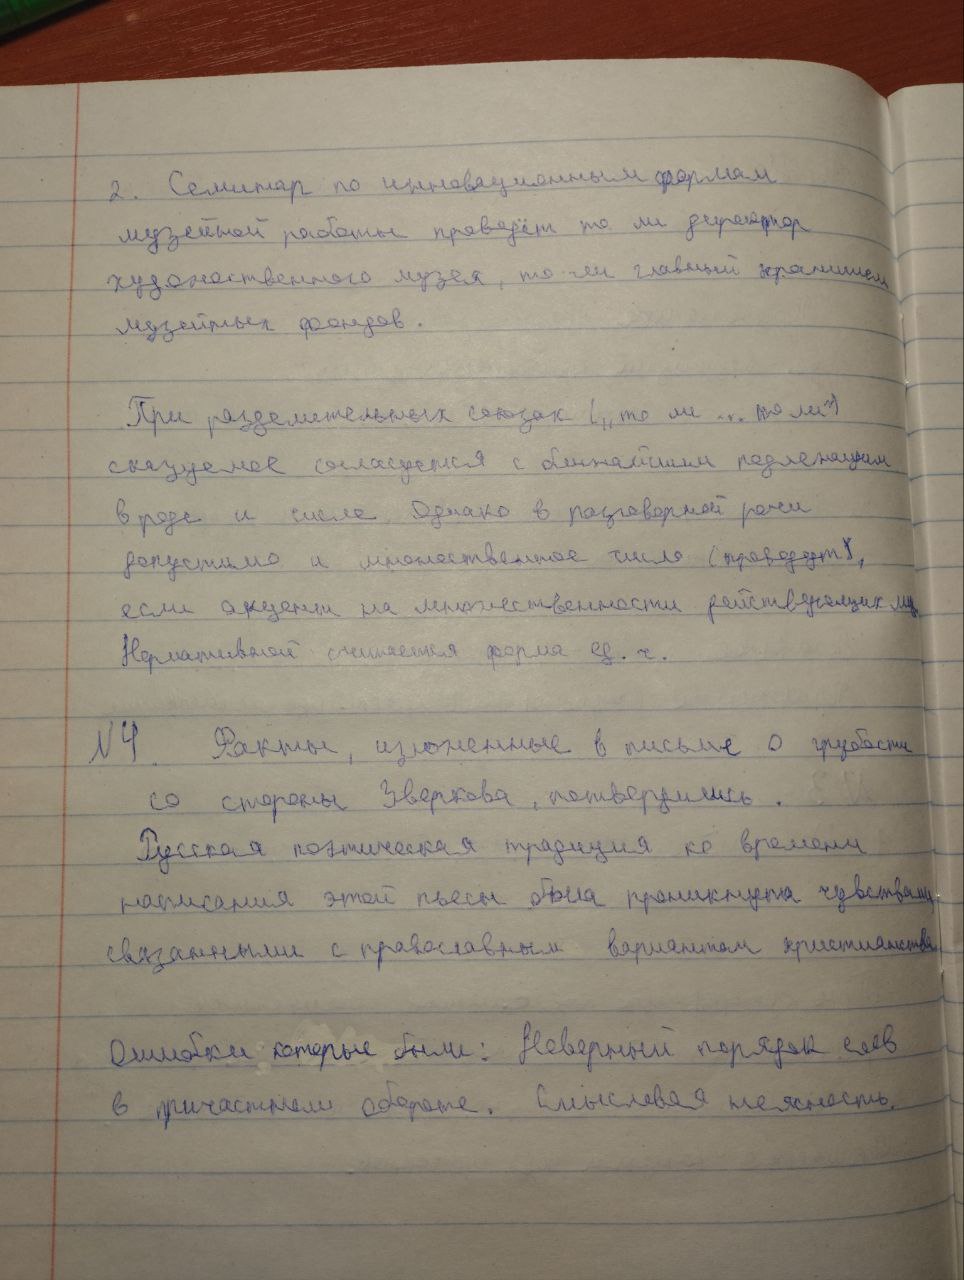 2. Семинар по инновационным формам
музейной работы проведёт то ли директор
художественного музея, то ли главный хранитель
музейных фондов.
При разделительных союзах („то ли ... то ли“)
сказуемое согласуется с ближайшим подлежащим
в роде и числе. Однако в разговорной речи
допустимо и множественное число (проведут),
если акцент на множественности действующих лиц
Нормативной считается форма ед. ч.
№4. Факты, изложенные в письме о грубости
со стороны Зверкова, потвердились.
Русская поэтическая традиция ко времени
написания этой пьесы была проникнута чувствами,
связанными с православным вариантом христианства
Ошибки которые были: Неверный порядок слов
в причастном обороте. Смысловая неясность.